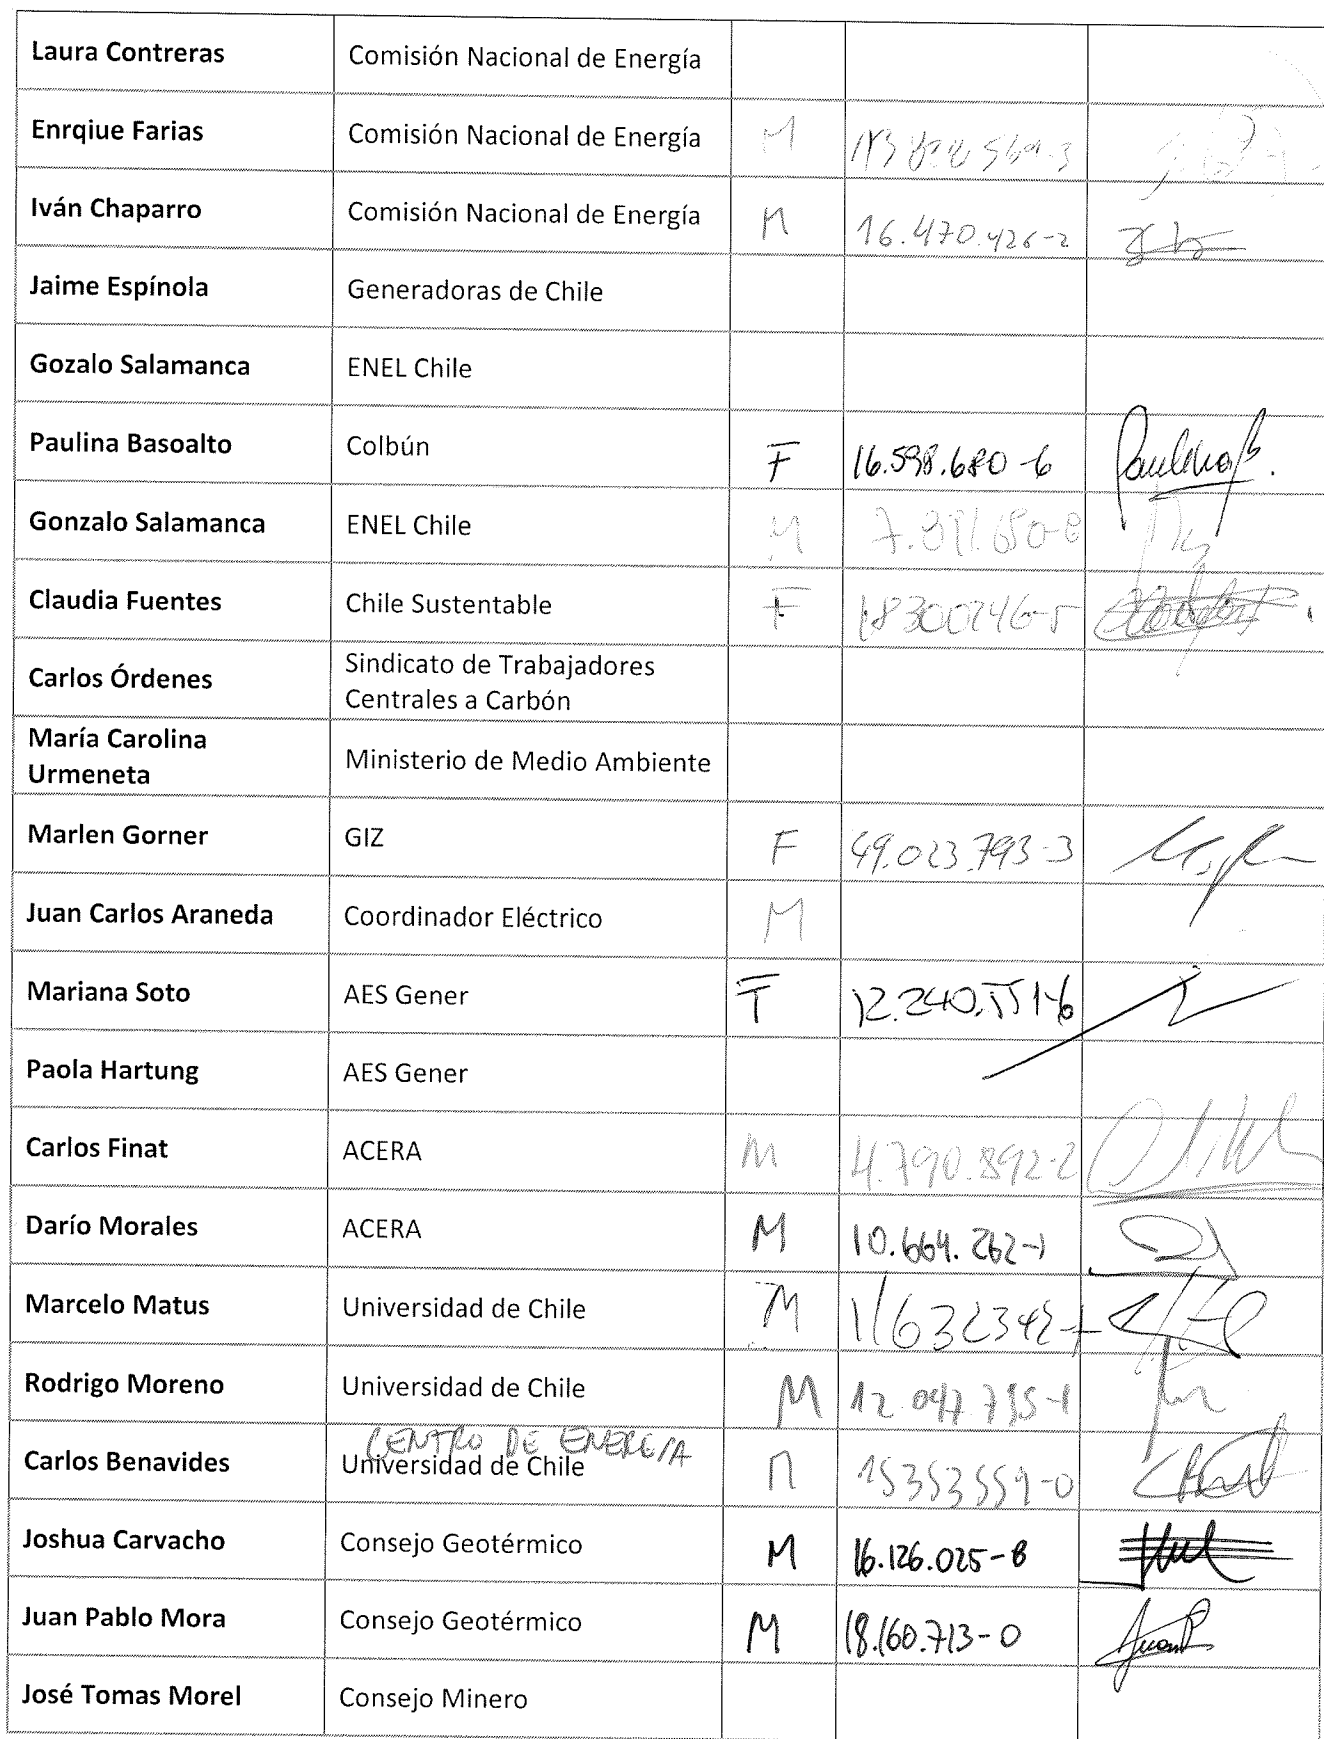 Laura Contreras Comisión Nacional de Energía
Enrqiue Farias Comisión Nacional de Energía M
Iván Chaparro Comisión Nacional de Energía M 16.470.426-2
Jaime Espínola Generadoras de Chile
Gozalo Salamanca ENEL Chile
Paulina Basoalto Colbún F 16.598.680-6
Gonzalo Salamanca ENEL Chile M
Claudia Fuentes Chile Sustentable F 18300246-5
Carlos Órdenes Sindicato de Trabajadores
Centrales a Carbón
María Carolina
Urmeneta Ministerio de Medio Ambiente
Marlen Gorner GIZ F 49.023.793-3
Juan Carlos Araneda Coordinador Eléctrico M
Mariana Soto AES Gener F 12.240.551-6
Paola Hartung AES Gener
Carlos Finat ACERA M 4.790.892-2
Darío Morales ACERA M 10.664.262-1
Marcelo Matus Universidad de Chile M
Rodrigo Moreno Universidad de Chile M
CENTRO DE ENERGIA
Carlos Benavides Universidad de Chile M 15353559-0
Joshua Carvacho Consejo Geotérmico M 16.126.025-8
Juan Pablo Mora Consejo Geotérmico M 18.160.713-0
José Tomas Morel Consejo Minero